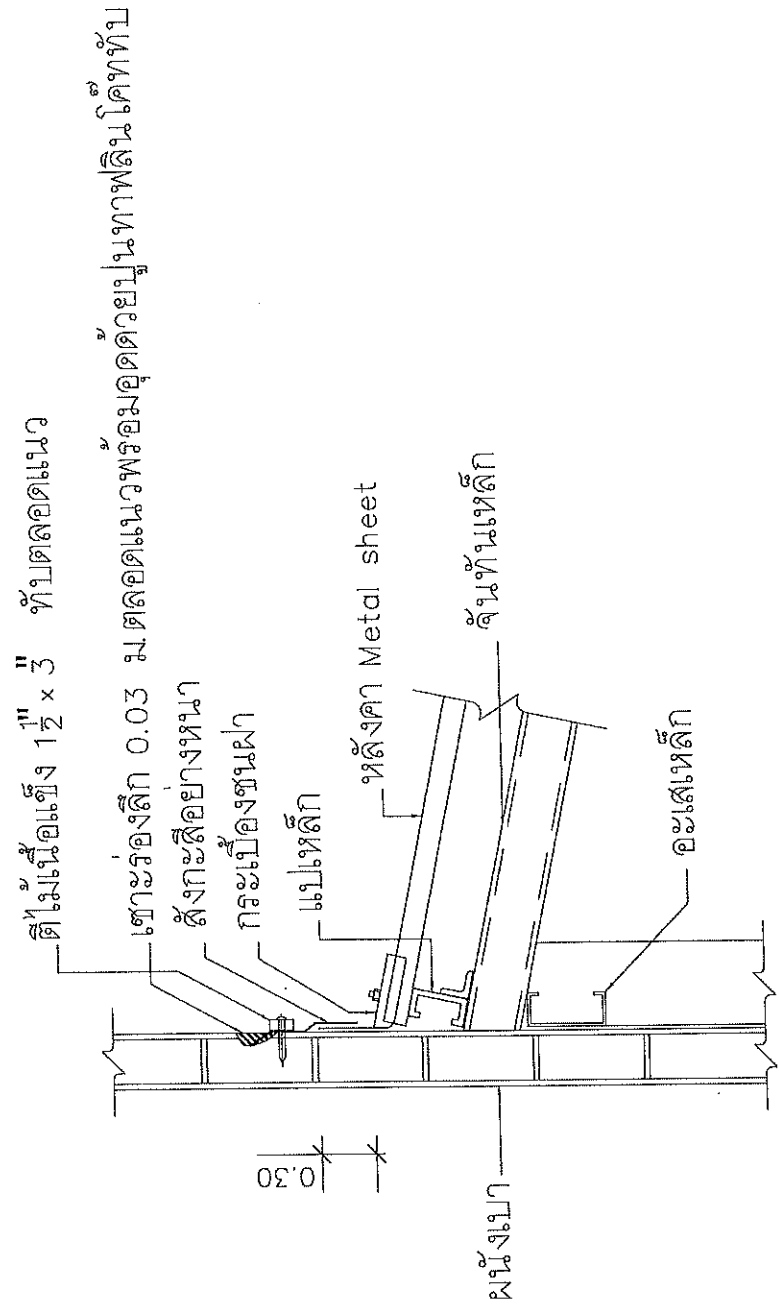 ตีไม้เนื้อแข็ง 1½" x 3" ทับตลอดแนว
เซาะร่องลึก 0.03 ม.ตลอดแนวพร้อมอุดด้วยปูนทาฟลินโค๊ททับ
สังกะสีอย่างหนา
กระเบื้องชนฝา
แปเหล็ก
หลังคา Metal sheet
จันทันเหล็ก
อะเสเหล็ก
0.30
ผนังเบา